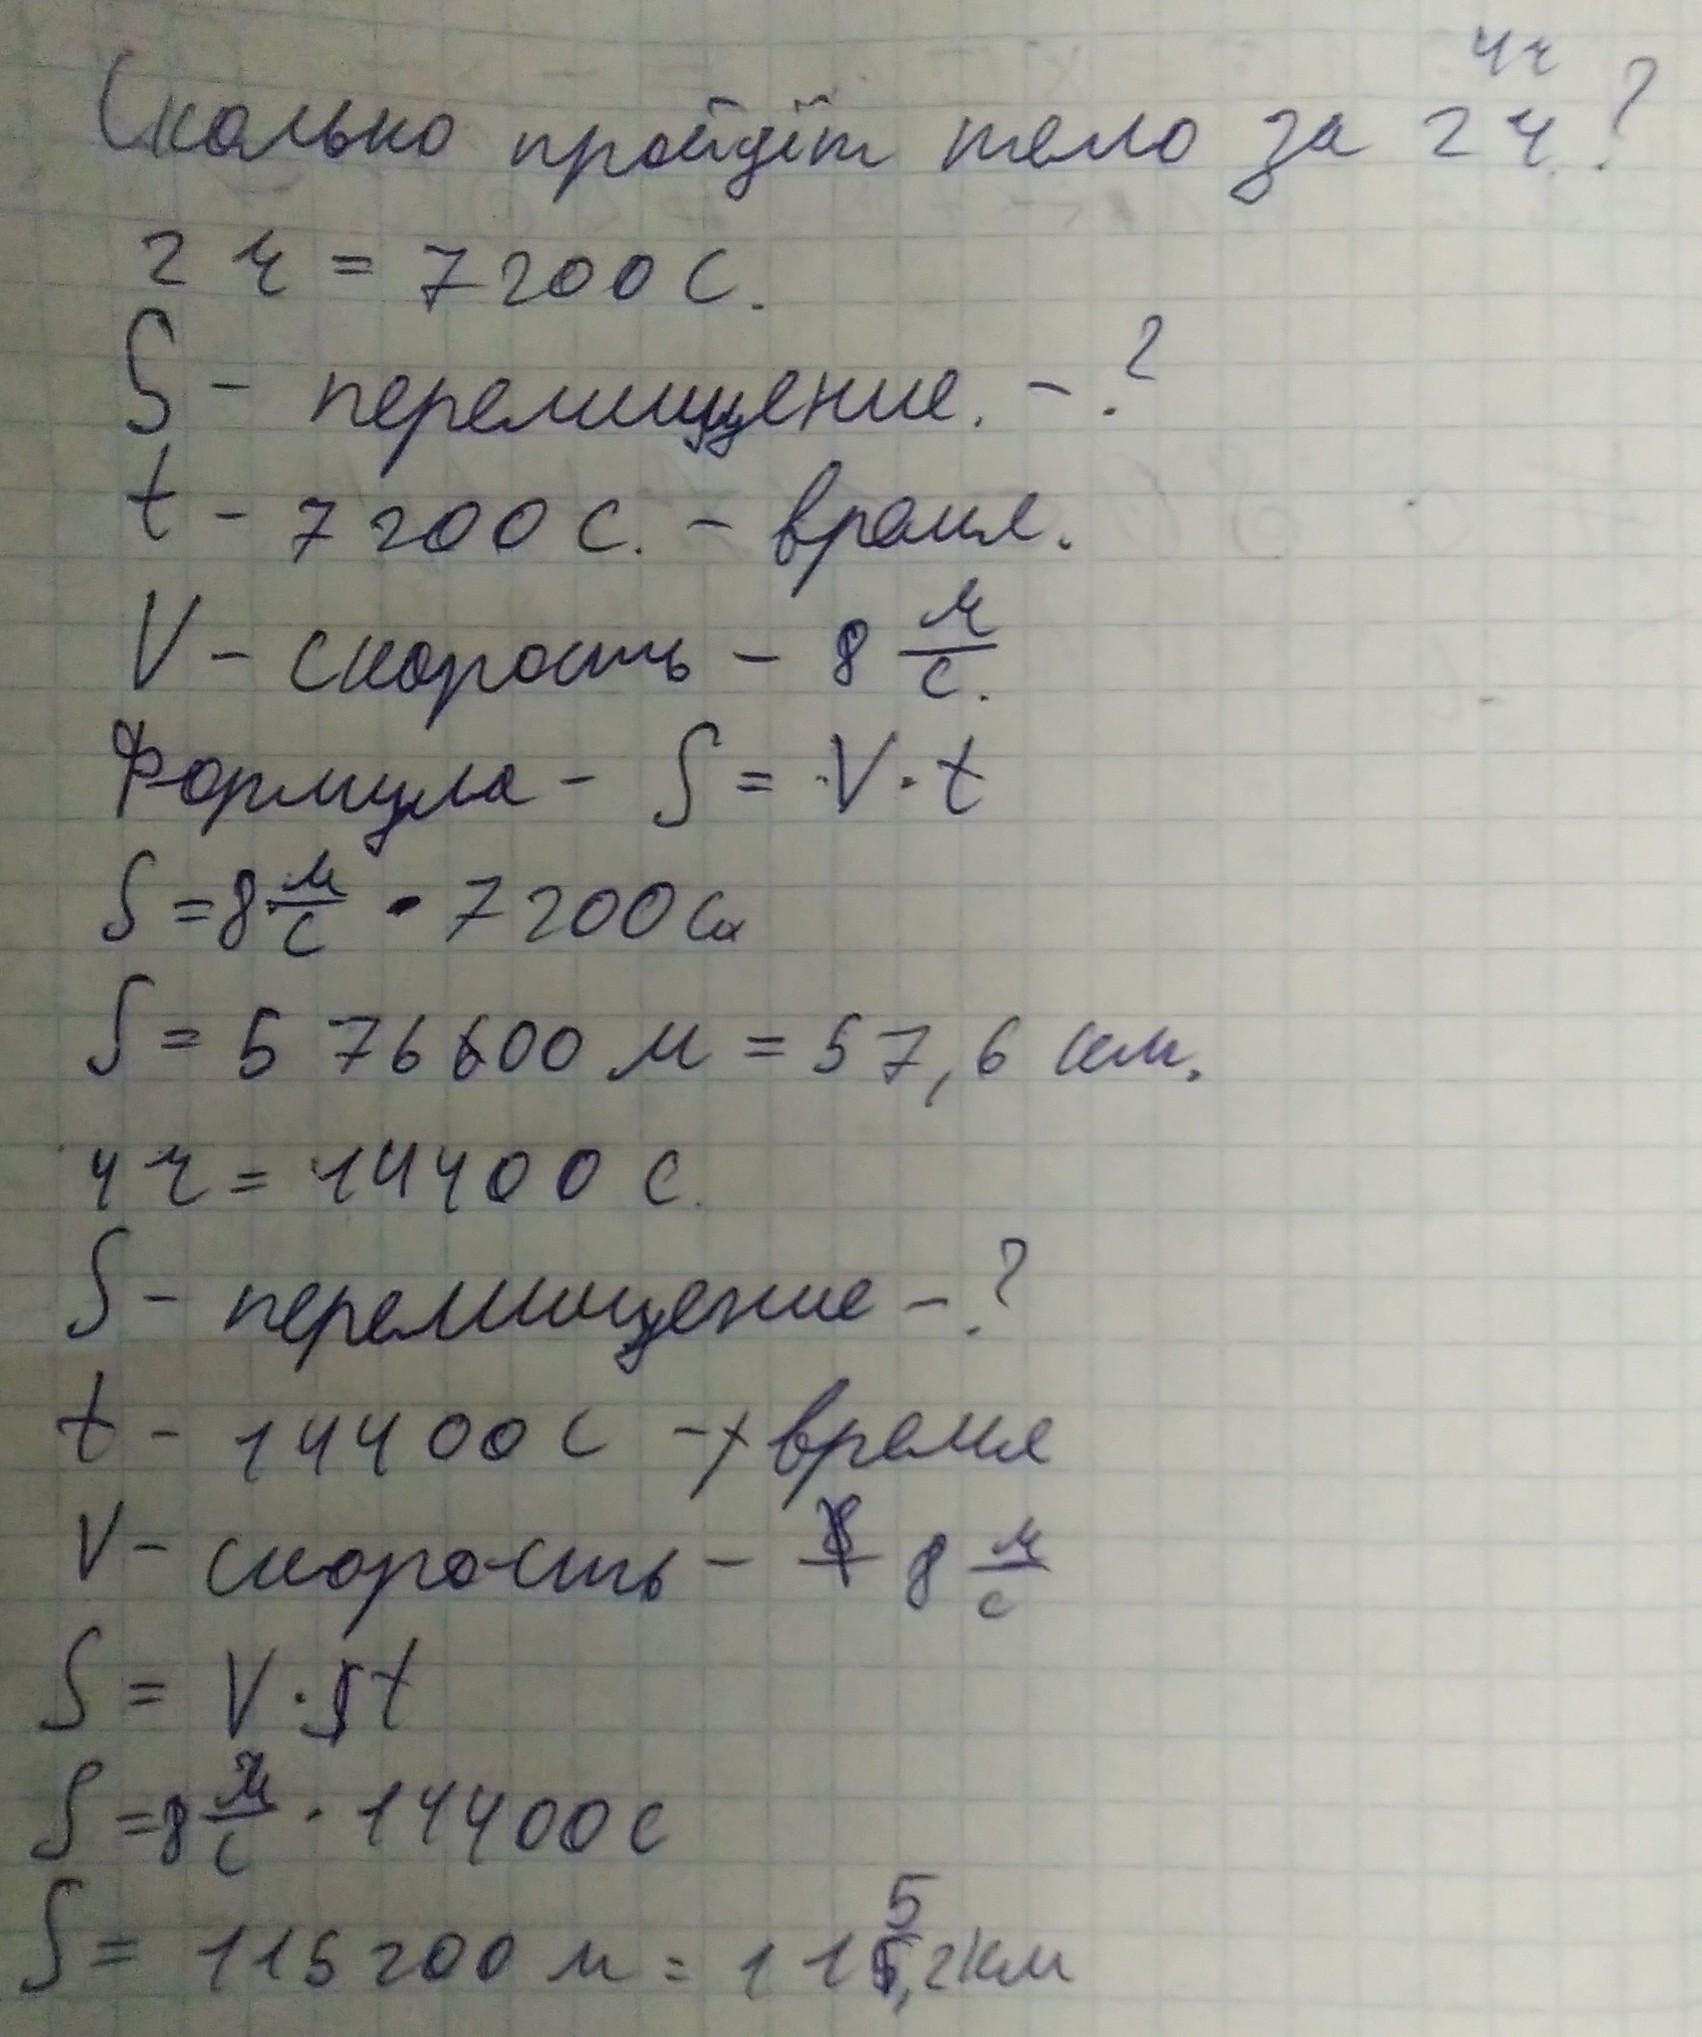 4ч
Сколько пройдёт тело за 2 ч.?
2 ч = 7200 с.
S - перемищение. - ?
t - 7200 с. - время.
V - скорость - 8 м/с.
Формула - S = V · t
S = 8 м/с · 7200 с
S = 57600 м = 57,6 км.
4 ч = 14400 с.
S - перемищение - ?
t - 14400 с - время
V - скорость - 8 м/с
S = V · t
S = 8 м/с · 14400 с
S = 115200 м = 115,2 км